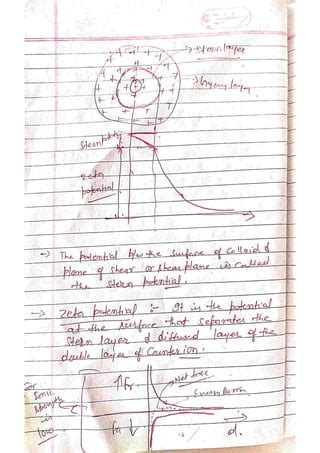 → Stern layer
→
Stern potential
zeta
potential
→ The potential b/w the surface of colloid &
plane of shear or shear plane is called
the stern potential.
→ Zeta potential :- It is the potential
at the surface that separates the
stern layer & diffused layer of the
double layer of Counter ion.
For
Ionic
is
low
↑FR
Net force
FA ↓
d.